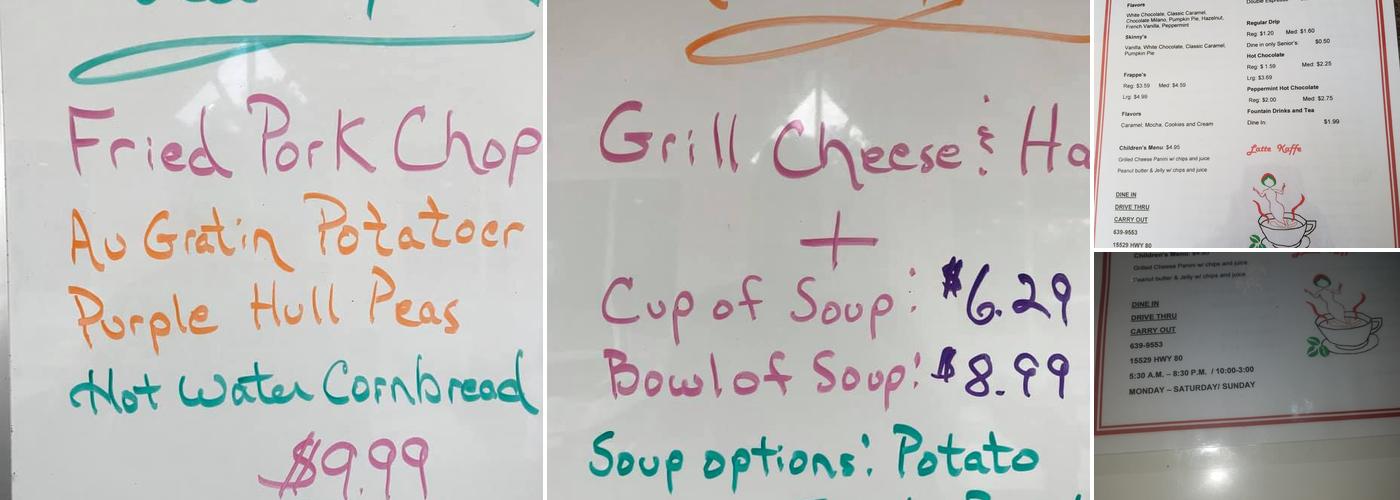 Fried Pork Chop
Au Gratin Potatoer
Purple Hull Peas
Hot Water Cornbread
$9.99
Grill Cheese & Ha
+
Cup of Soup: $6.29
Bowl of Soup: $8.99
Soup options: Potato
Flavors
White Chocolate, Classic Caramel,
Chocolate Milano, Pumpkin Pie, Hazelnut,
French Vanilla, Peppermint
Skinny's
Vanilla, White Chocolate, Classic Caramel,
Pumpkin Pie
Frappe's
Reg: $3.59 Med: $4.59
Lrg: $4.99
Flavors
Caramel, Mocha, Cookies and Cream
Children's Menu: $4.95
Grilled Cheese Panini w/ chips and juice
Peanut butter & Jelly w/ chips and juice
DINE IN
DRIVE THRU
CARRY OUT
639-9553
15529 HWY 80
Regular Drip
Reg: $1.20 Med: $1.60
Dine in only Senior's $0.50
Hot Chocolate
Reg: $ 1.59 Med: $2.25
Lrg: $3.69
Peppermint Hot Chocolate
Reg: $2.00 Med: $2.75
Fountain Drinks and Tea
Dine In: $1.99
Latte Kaffe
Grilled Cheese Panini w/ chips and juice
Peanut butter & Jelly w/ chips and juice
DINE IN
DRIVE THRU
CARRY OUT
639-9553
15529 HWY 80
5:30 A.M. – 8:30 P.M. / 10:00-3:00
MONDAY – SATURDAY/ SUNDAY